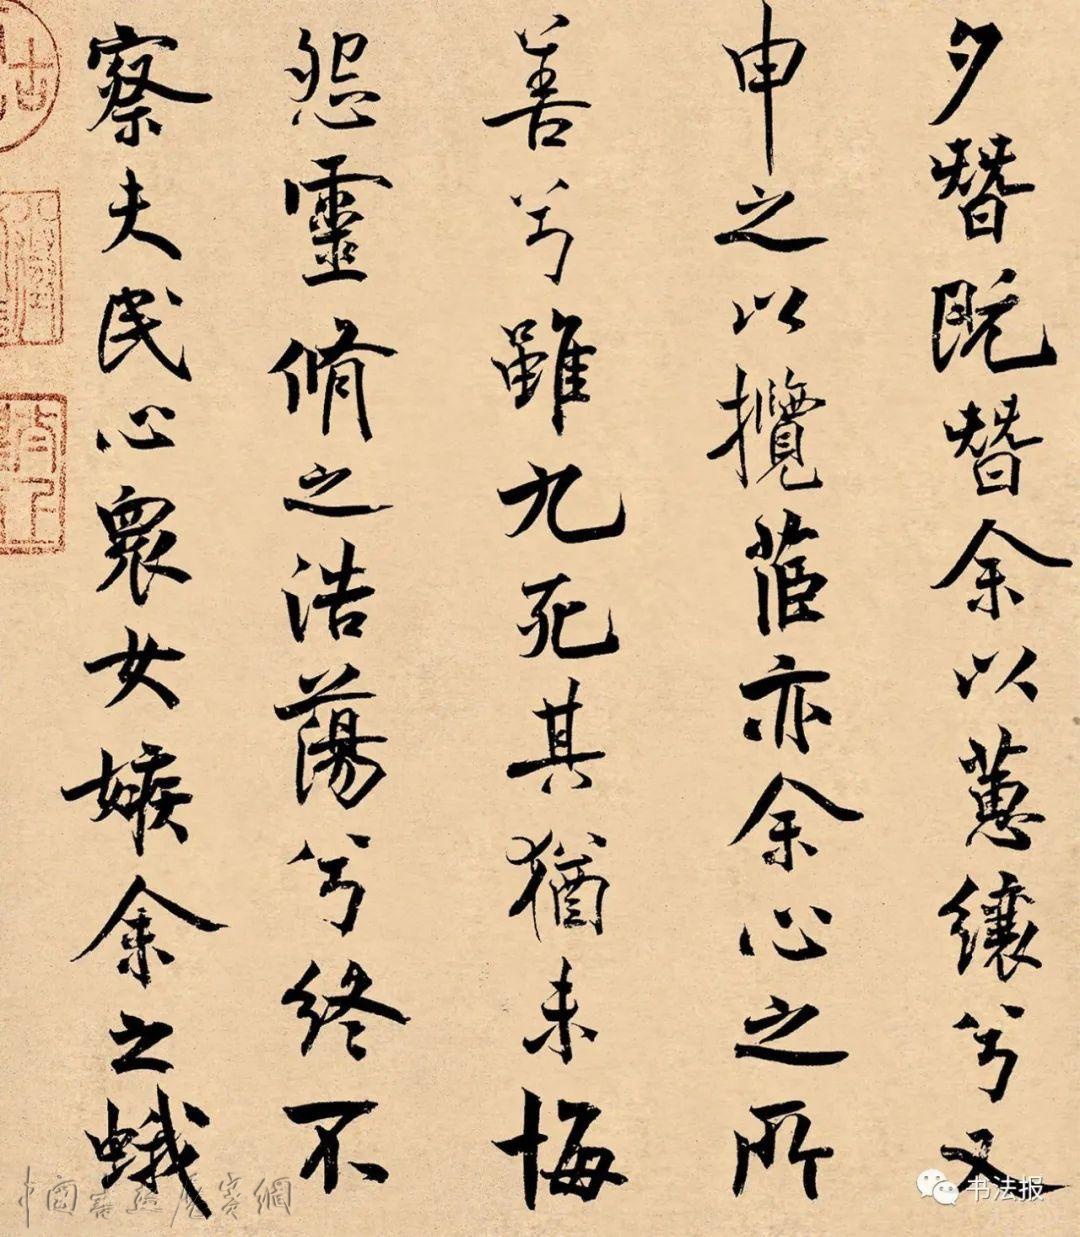 夕朁既朁余以蕙纕兮又
申之以攬茝亦余心之所
善兮雖九死其猶未悔
怨靈脩之浩蕩兮終不
察夫民心衆女嫉余之蛾
书法报